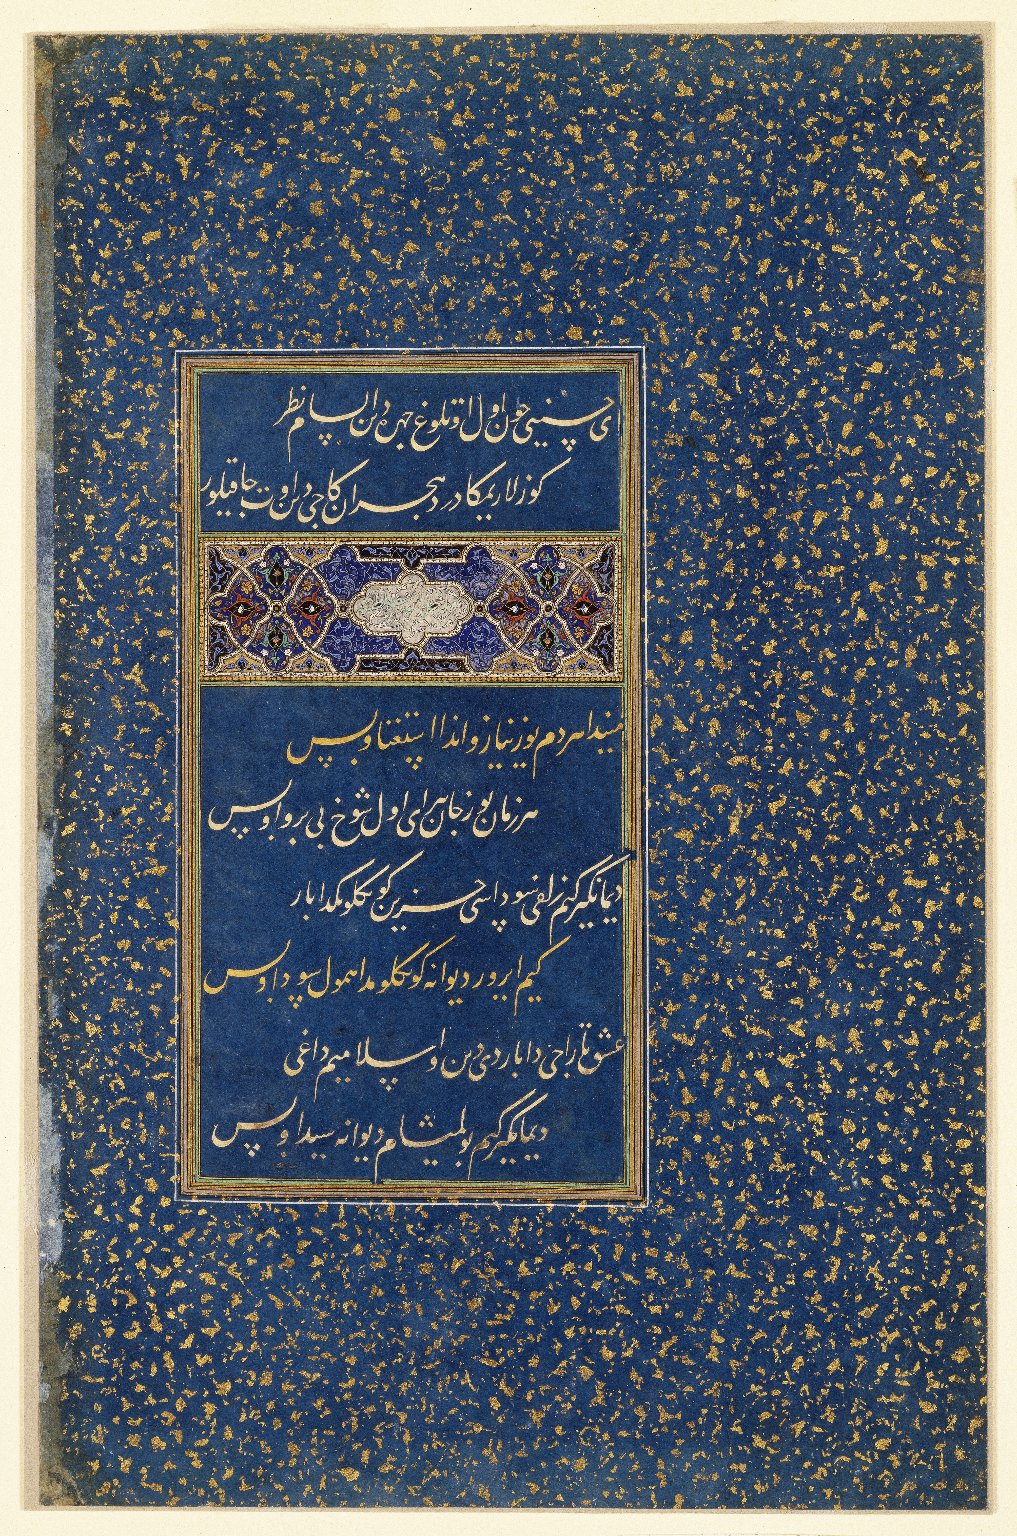 ای حسینی چون اول اوتلوغ چهره دین السام نظر
کوزلاریمکا در هجران کاجی دین اوت چاقیلور
مینیدا هردم یوز نیاز و اندا استغنا و بس
هر زمان یوز جان برای اول شوخ بی پروا و بس
دیمانکیز کیم زلفی سوداسی حزین کونکلومکدا بار
کیم ایرور دیوانه کونکلومدا همول سودا و بس
عشق تاراجی دا باردی دین و اسلامیم داغی
دیمانکیز کیم بولمیشام دیوانه شیدا و بس